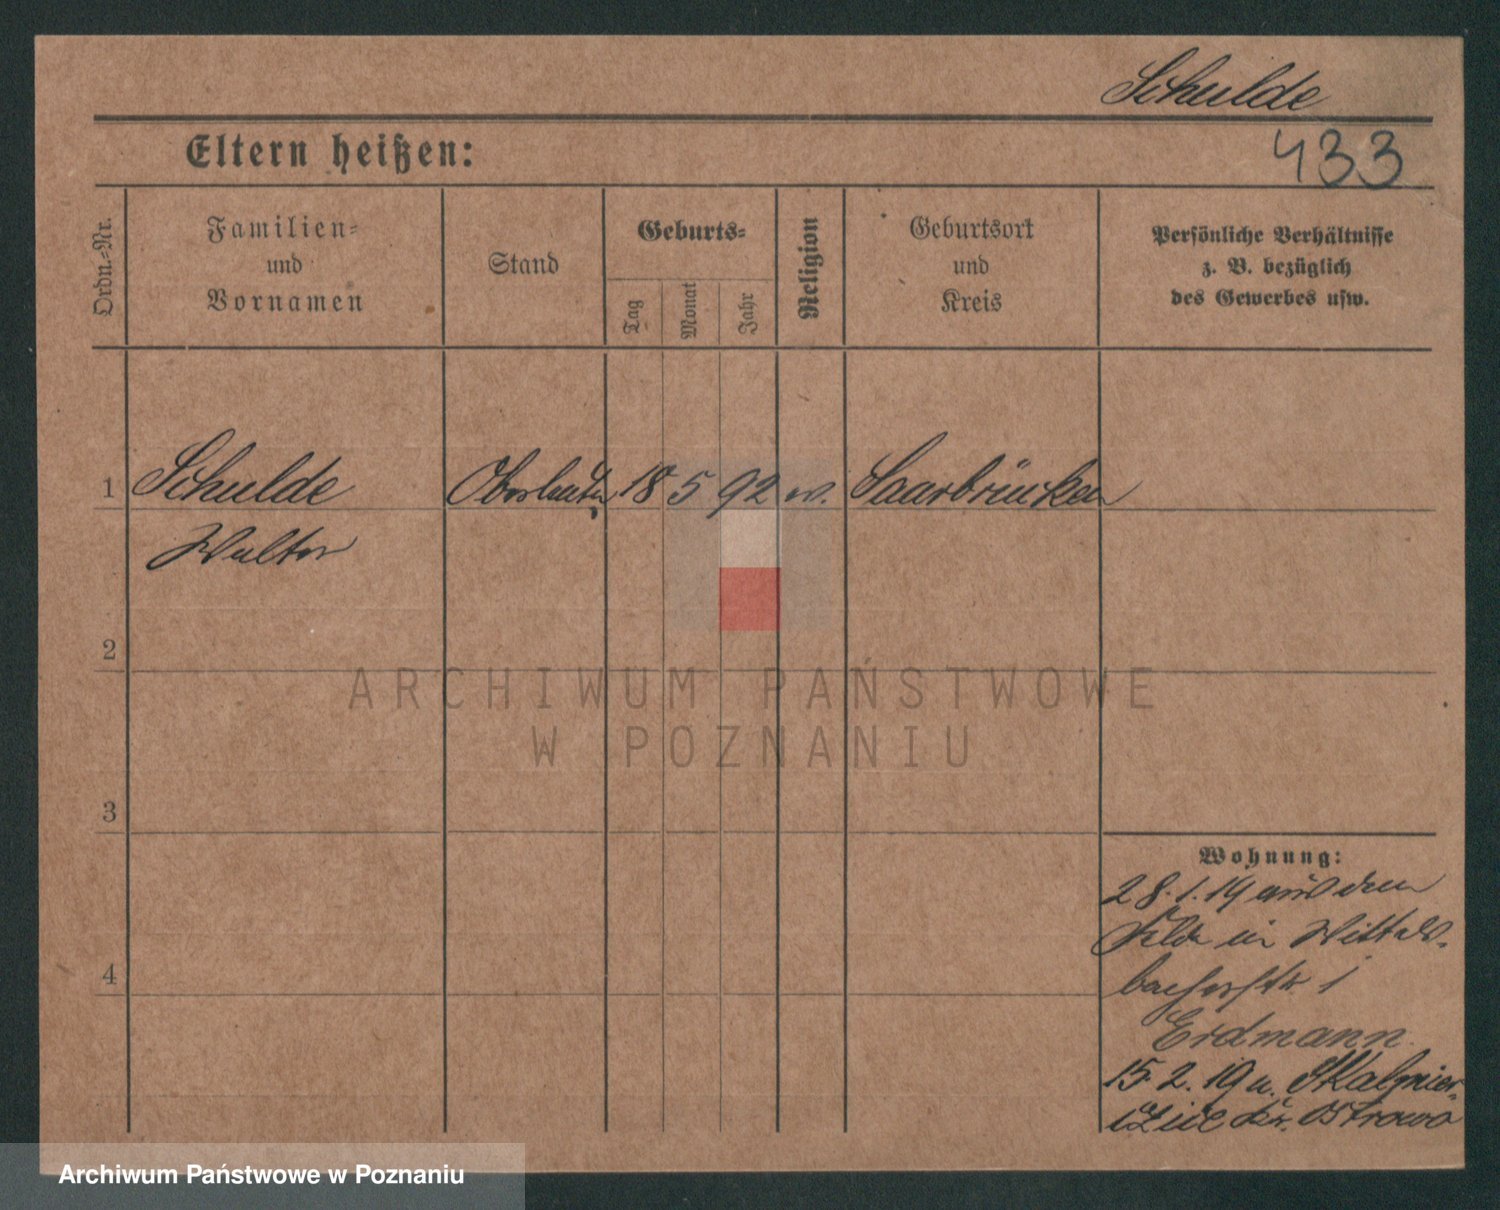 Schulde
433
Eltern heißen:
Ordn.-Nr.
Familien-
und
Vornamen
Stand
Geburts-
Tag
Monat
Jahr
Religion
Geburtsort
und
Kreis
Persönliche Verhältnisse
z. B. bezüglich
des Gewerbes usw.
1 Schulde 18 5 92 Saarbrücken
Walter
2
ARCHIWUM PAŃSTWOWE
W POZNANIU
3
Wohnung:
28.1.19 aus dem
Felde in Wittels-
4
bacherstr 1
Erdmann
15.2.19 n. Skalmier-
zice Kr. Ostrowo
Archiwum Państwowe w Poznaniu